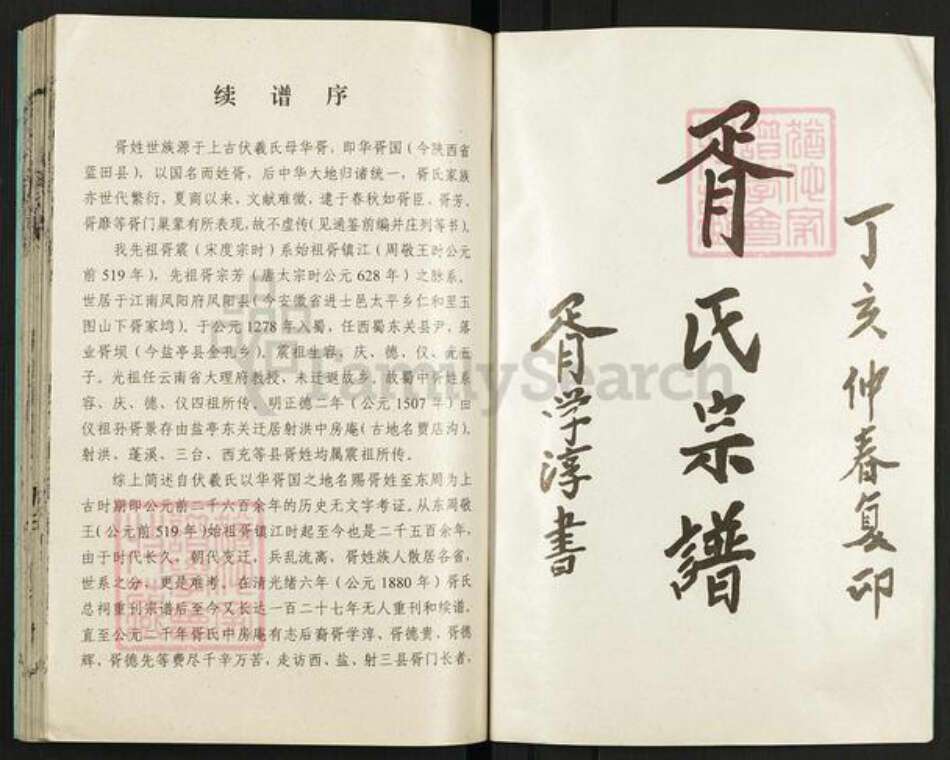 续谱序
胥姓世族源于上古伏羲氏母华胥，即华胥国（今陕西省
蓝田县），以国名而姓胥，后中华大地归诸统一，胥氏家族
亦世代繁衍，夏商以来，文献难徵，逮于春秋如胥臣、胥芳、
胥靡等胥门巢鞏有所表现，故不虚传（见通鉴前编并庄列等书）。
我先祖胥震（宋度宗时）系始祖胥镇江（周敬王时公元
前519年），先祖胥宗芳（唐太宗时公元628年）之脉系。
世居于江南凤阳府凤阳县（今安徽省进士邑太平乡仁和里玉
图山下胥家坞）。于公元1278年入蜀，任西蜀东关县尹，落
业胥坝（今盐亭县金孔乡）。震祖生容、庆、德、仪、光五
子。光祖任云南省大理府教授，未迁返故乡，故蜀中胥姓系
容、庆、德、仪四祖所传。明正德二年（公元1507年）由
仪祖孙胥景存由盐亭东关迁居射洪中房庵（古地名贾店沟）。
射洪、蓬溪、三台、西充等县胥姓均属震祖所传。
综上简述自伏羲氏以华胥国之地名赐胥姓至东周为上
古时期即公元前二千六百余年的历史无文字考证。从东周敬
王（公元前519年）始祖胥镇江时起至今也是二千五百余年，
由于时代长久，朝代变迁，兵乱流离，胥姓族人散居各省，
世系之分，更是难考，在清光绪六年（公元1880年）胥氏
总祠重刊宗谱后至今又长达一百二十七年无人重刊和续谱，
直至公元二千年胥氏中房庵有志后裔胥学淳、胥德贵、胥德
辉、胥德先等费尽千辛万苦，走访西、盐、射三县胥门长者，
丁亥仲春复印
胥氏宗譜
胥学淳書
FamilySearch